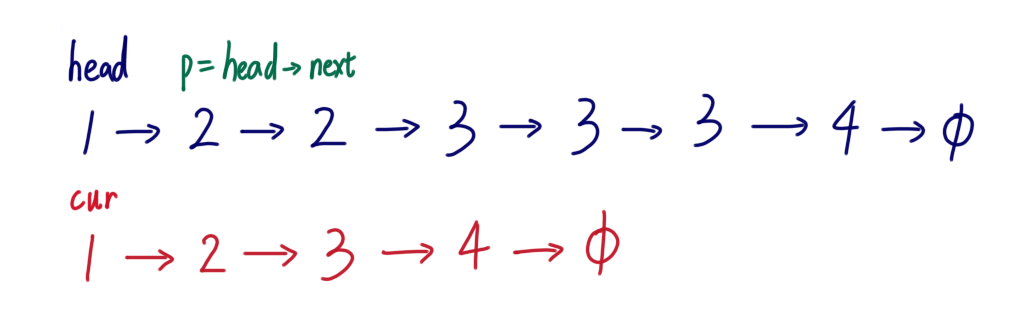 head p = head → next
1 → 2 → 2 → 3 → 3 → 3 → 4 → ϕ
cur
1 → 2 → 3 → 4 → ϕ